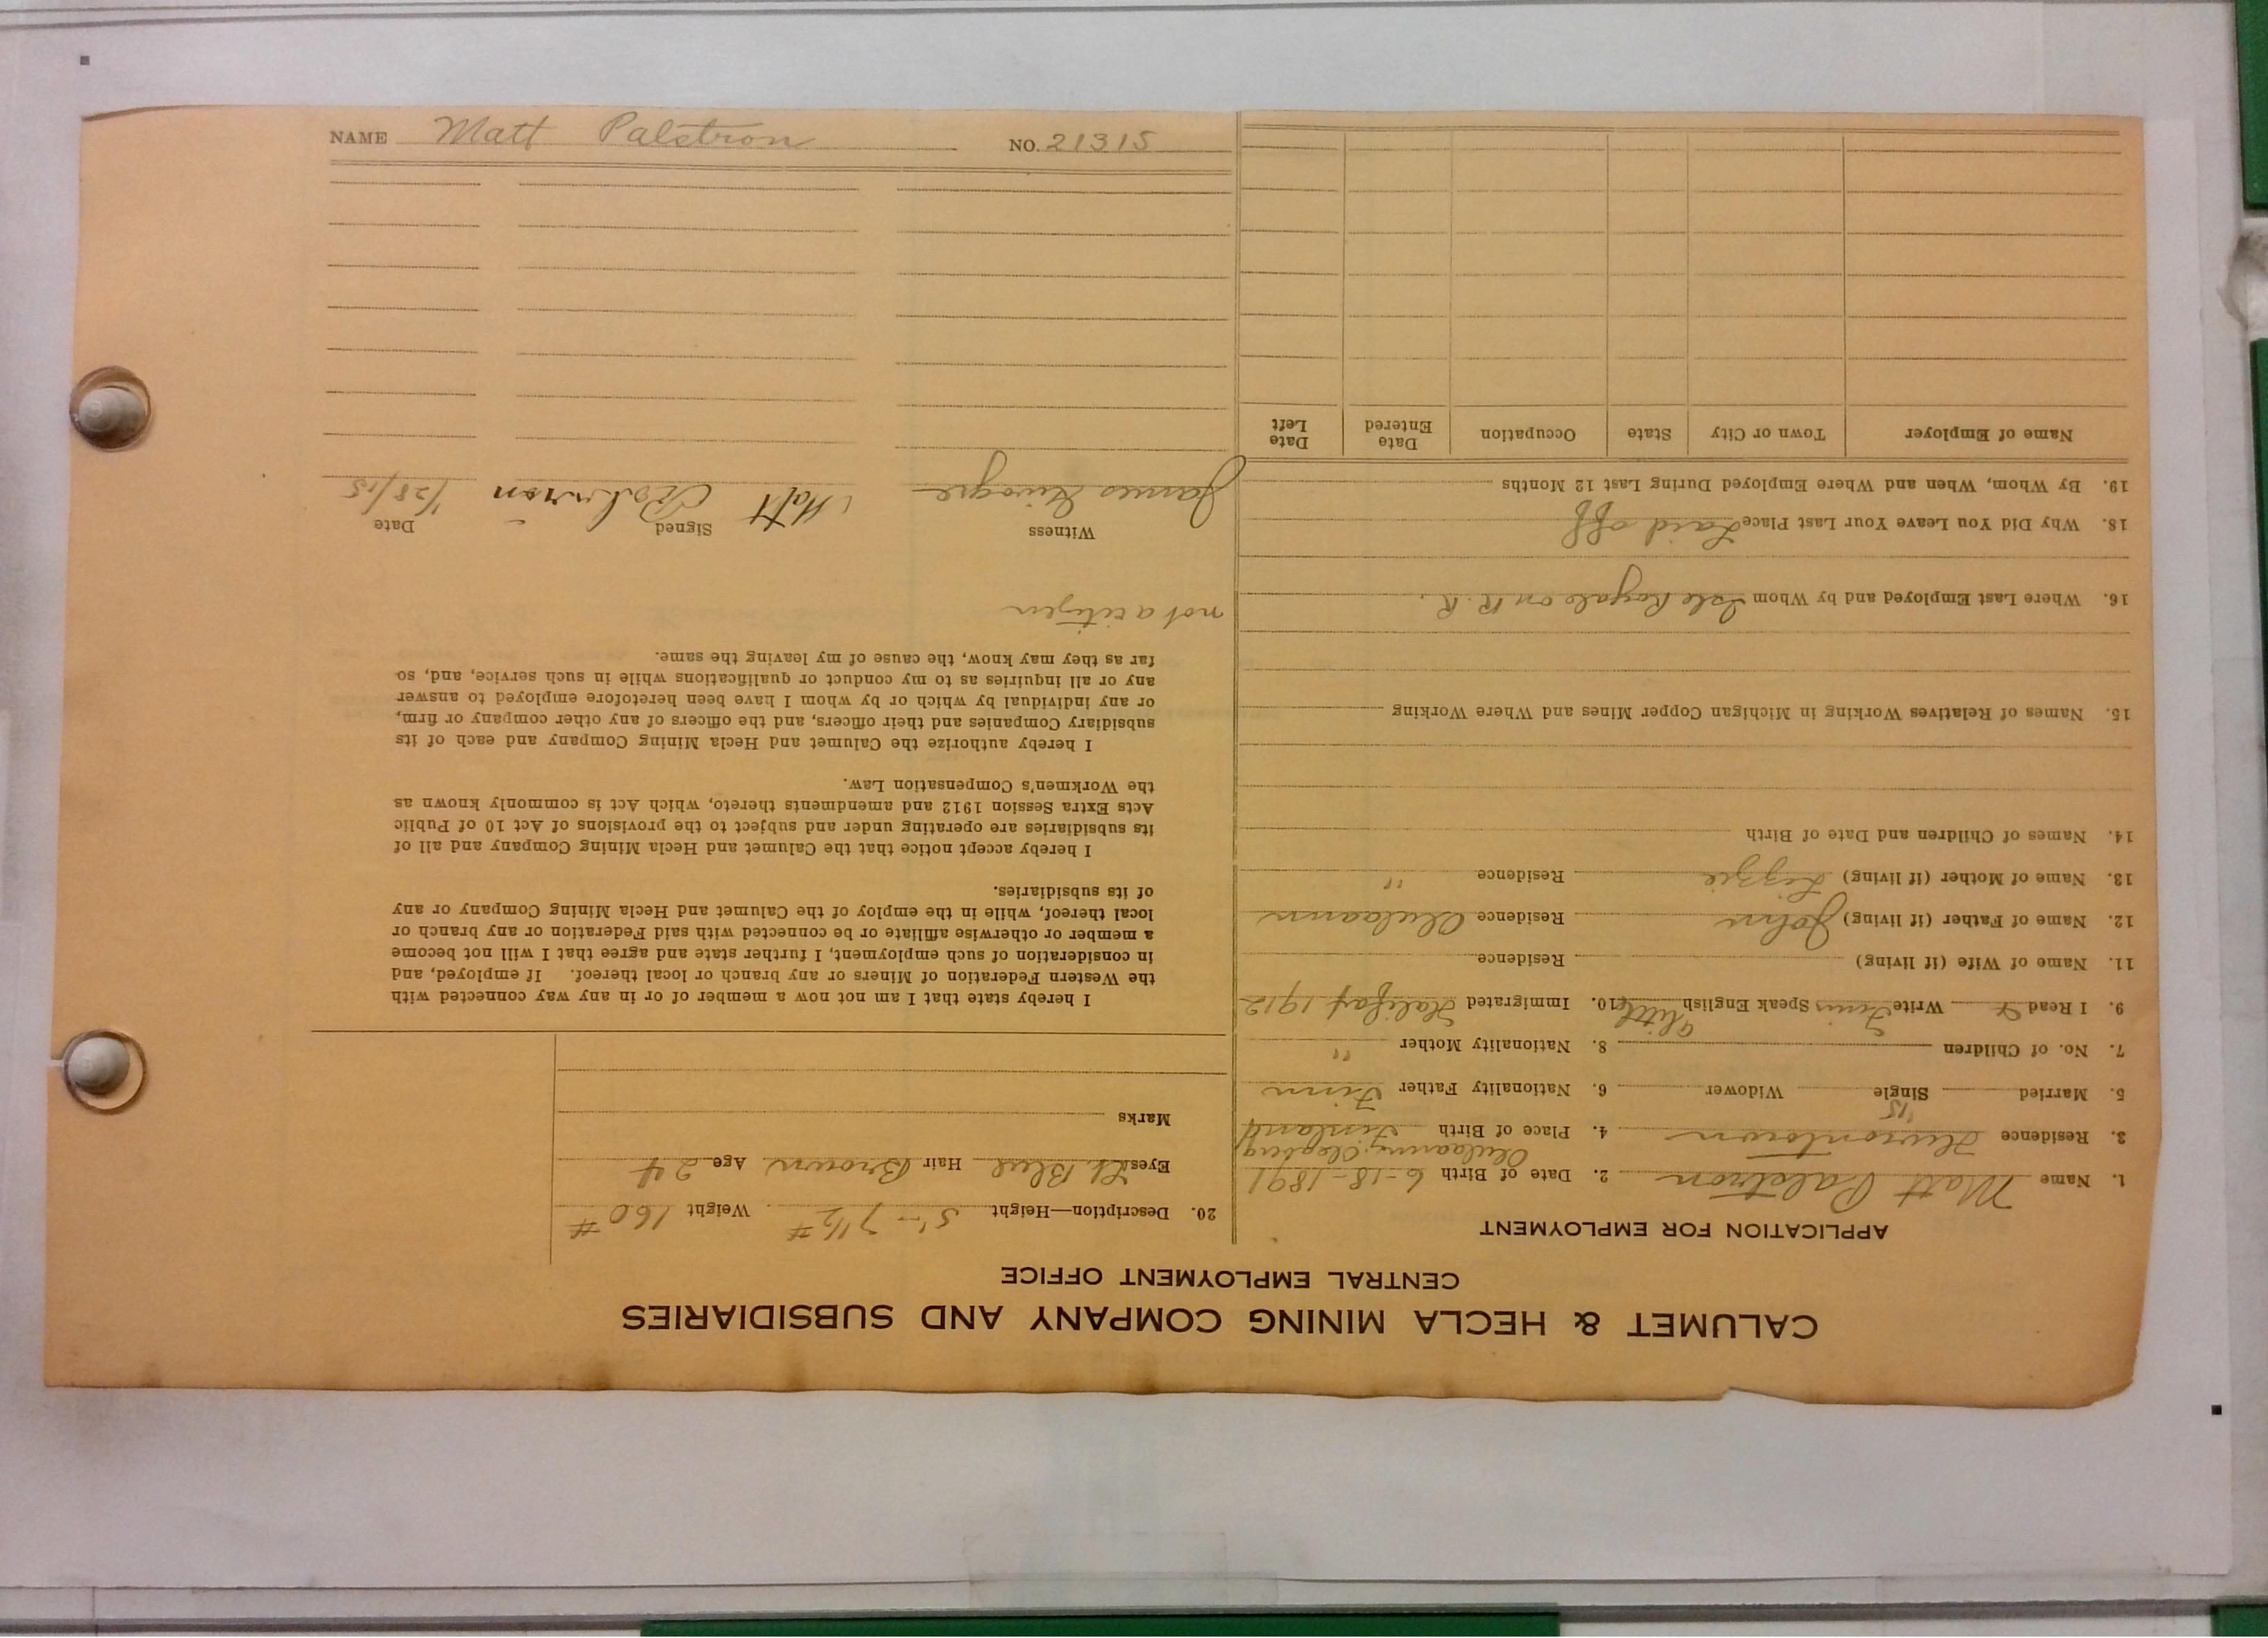 CALUMET & HECLA MINING COMPANY AND SUBSIDIARIES
CENTRAL EMPLOYMENT OFFICE
APPLICATION FOR EMPLOYMENT
1. Name Matt Palstron 2. Date of Birth 6-18-1891
3. Residence Hurontown 4. Place of Birth Finland
'15
5. Married Single Widower 6. Nationality Father Finn
7. No. of Children 8. Nationality Mother "
9. I Read Write Finnis Speak English little 10. Immigrated Halifax 1912
11. Name of Wife (if living) Residence
12. Name of Father (if living) John Residence
13. Name of Mother (if living) Lizzie Residence "
14. Names of Children and Date of Birth
15. Names of Relatives Working in Michigan Copper Mines and Where Working
16. Where Last Employed and by Whom Isle Royale on R. R.
18. Why Did You Leave Your Last Place Laid off
19. By Whom, When and Where Employed During Last 12 Months
Name of Employer Town or City State Occupation Date Entered Date Left
20. Description—Height 5'-7 1/2" Weight 160 #
Eyes Lt Blue Hair Brown Age 24
Marks
I hereby state that I am not now a member of or in any way connected with
the Western Federation of Miners or any branch or local thereof. If employed, and
in consideration of such employment, I further state and agree that I will not become
a member or otherwise affiliate or be connected with said Federation or any branch or
local thereof, while in the employ of the Calumet and Hecla Mining Company or any
of its subsidiaries.
I hereby accept notice that the Calumet and Hecla Mining Company and all of
its subsidiaries are operating under and subject to the provisions of Act 10 of Public
Acts Extra Session 1912 and amendments thereto, which Act is commonly known as
the Workmen's Compensation Law.
I hereby authorize the Calumet and Hecla Mining Company and each of its
subsidiary Companies and their officers, and the officers of any other company or firm,
or any individual by which or by whom I have been heretofore employed to answer
any or all inquiries as to my conduct or qualifications while in such service, and, so
far as they may know, the cause of my leaving the same.
not a citizen
Witness Signed Date
James Matt 1/28/15
NAME Matt Palstron NO. 21315